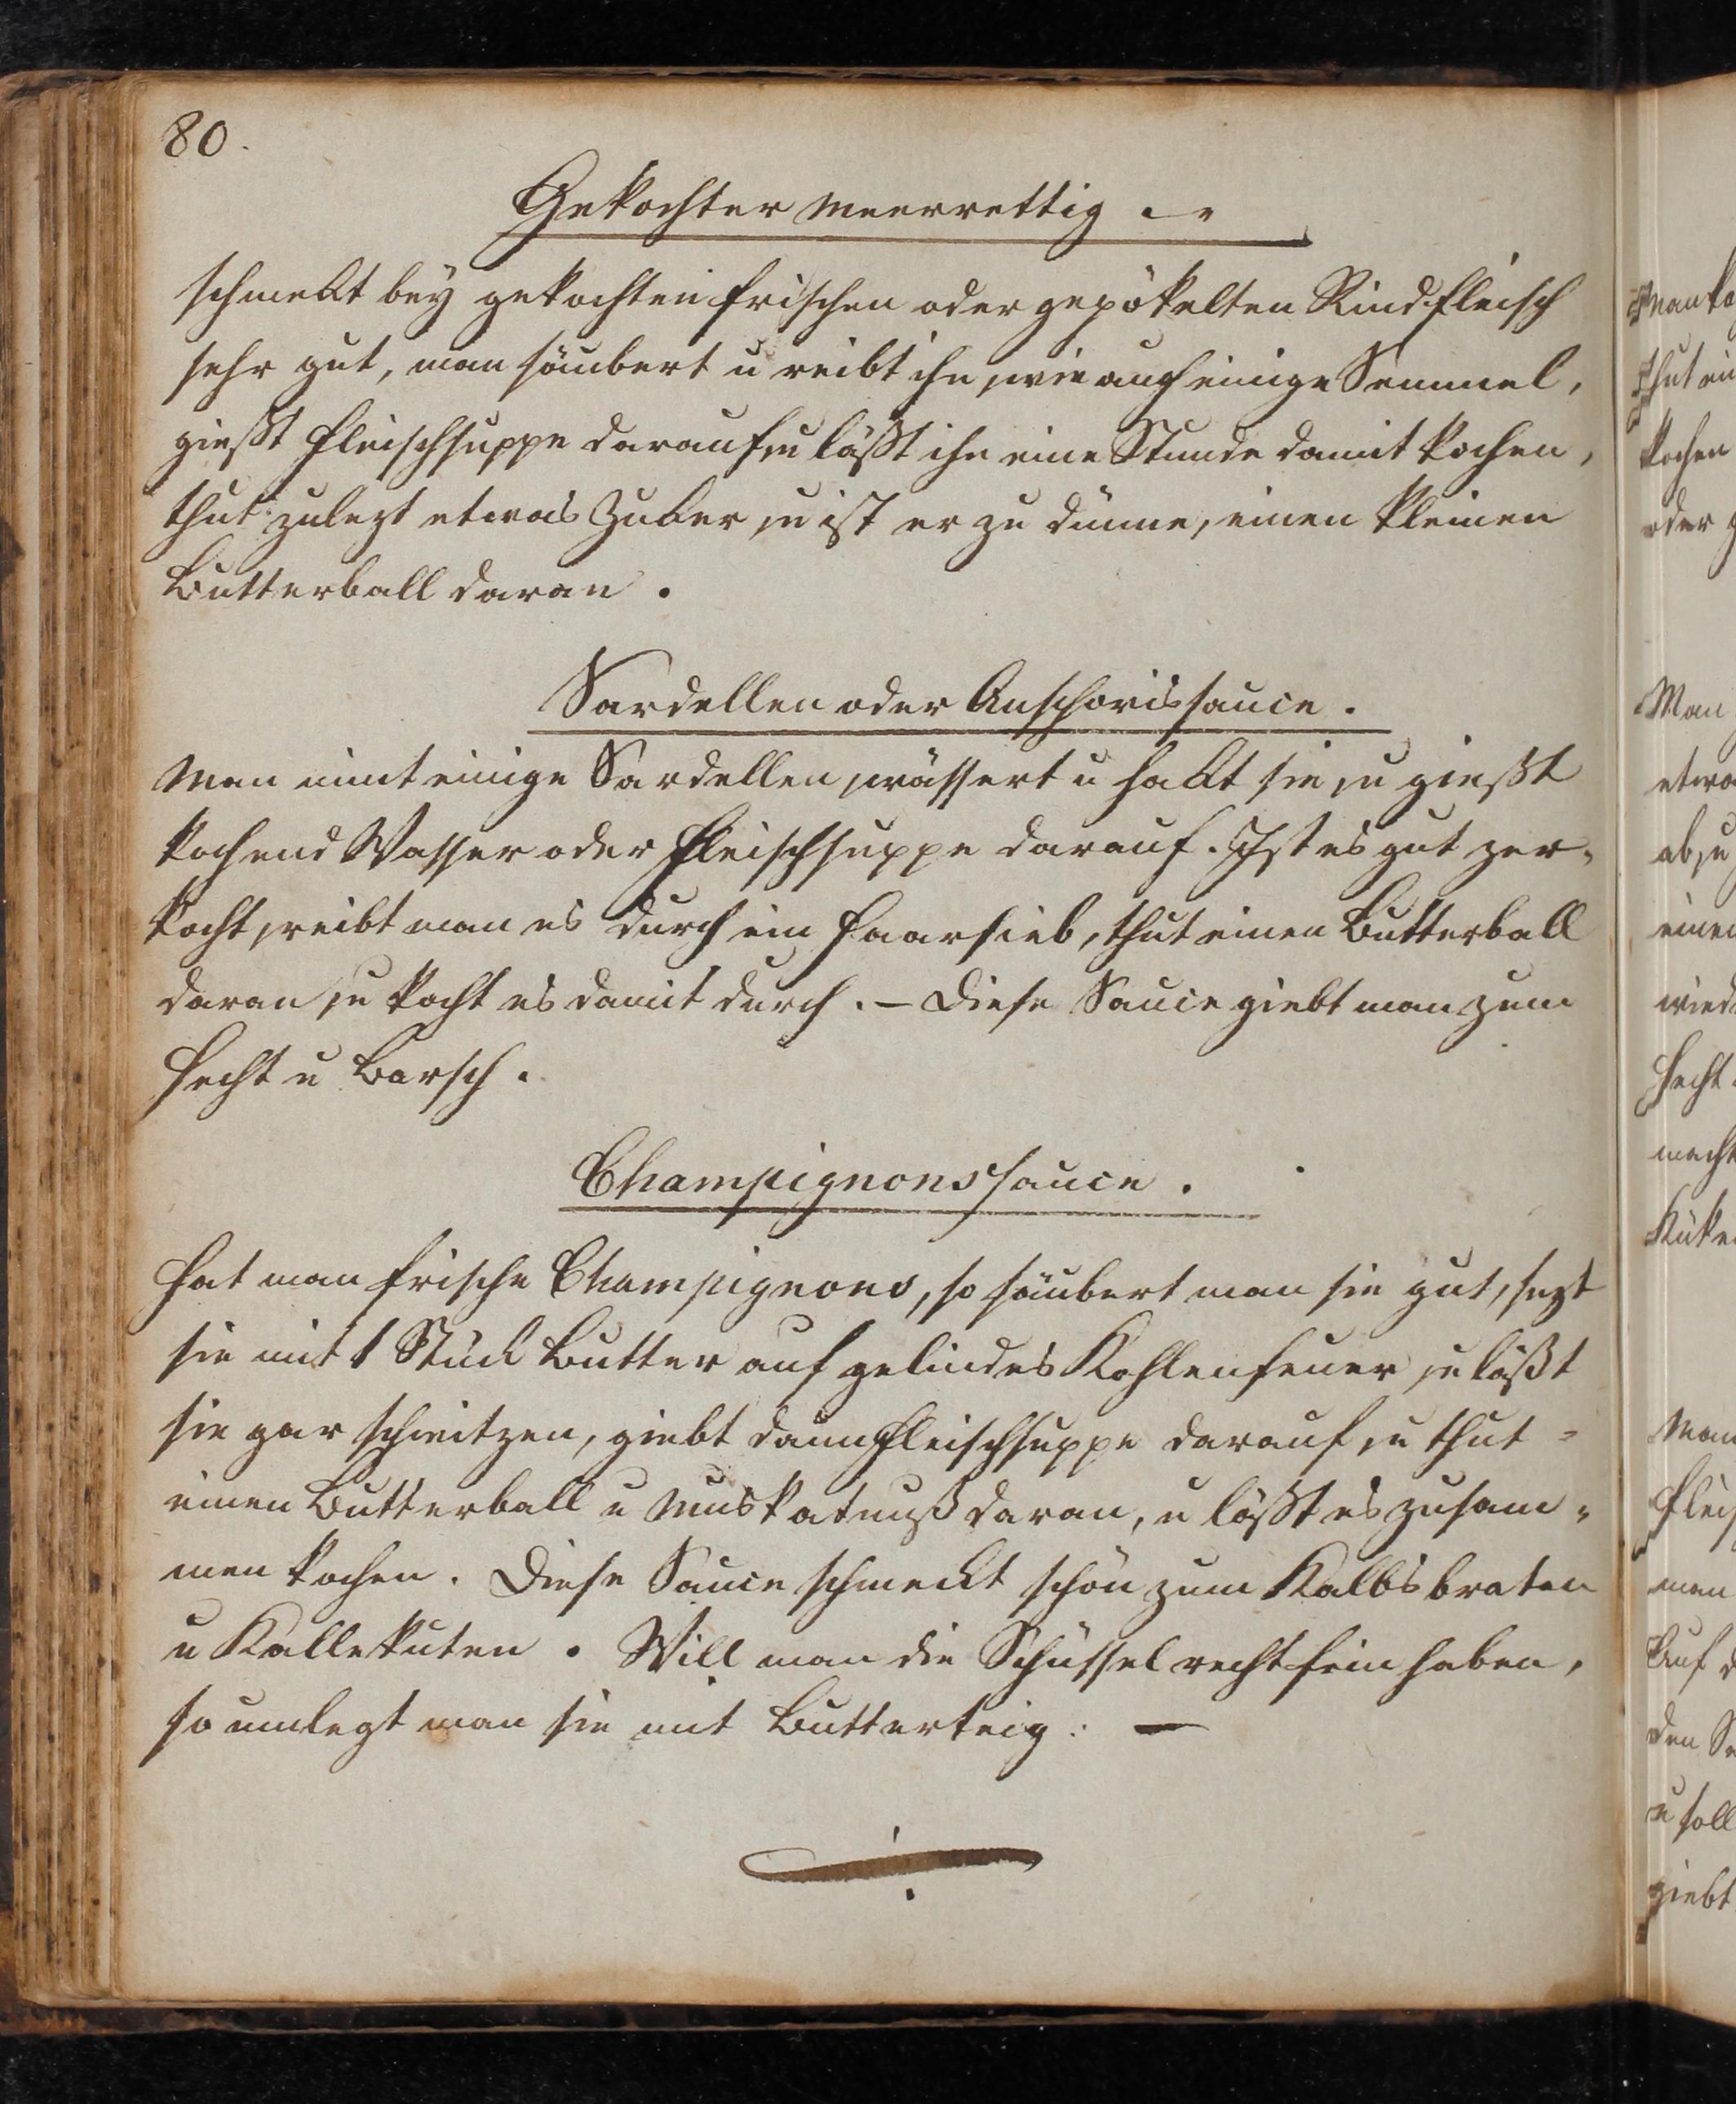 80.
Gekochter Meerrettig.
schmekt bey gekochten frischen oder gepökelten Rindfleisch
sehr gut, man säubert u reibt ihn, wie auch einige Semmel,
gießt Fleischsuppe darauf, u läßt ihn eine Stunde damit kochen,
thut zulezt etwas Zuker, u ist er zu dünne, einen kleinen
Butterball daran.
Sardellen oder Anschovissauce.
Man nimt einige Sardellen, wässert u hakt sie, u gießt
kochend Wasser oder Fleischsuppe darauf. Ist es gut zer-
kocht, reibt man es durch ein Haarsieb, thut einen Butterball
daran, u kocht es damit durch. – Diese Sauce giebt man zum
Hecht u Barsch.
Champignonssauce.
Hat man frische Champignons, so säubert man sie gut, sezt
sie mit 1 Stück Butter auf gelindes Kohlenfeuer, u läßt
sie gar schwitzen, giebt dann Fleischsuppe darauf, u thut
einen Butterball u Muskatnuß daran, u läßt es zusam-
men kochen. Diese Sauce schmeckt schön zum Kalbsbraten
u Kallekuten. Will man die Schüssel recht fein haben,
so umlegt man sie mit Butterteig. —
Man
thut
kochen
oder
Man
etwa
ab, u
einen
wied
Hecht
macht
Küke
Man
Fleis
man
auf d
den Se
u soll
giebt